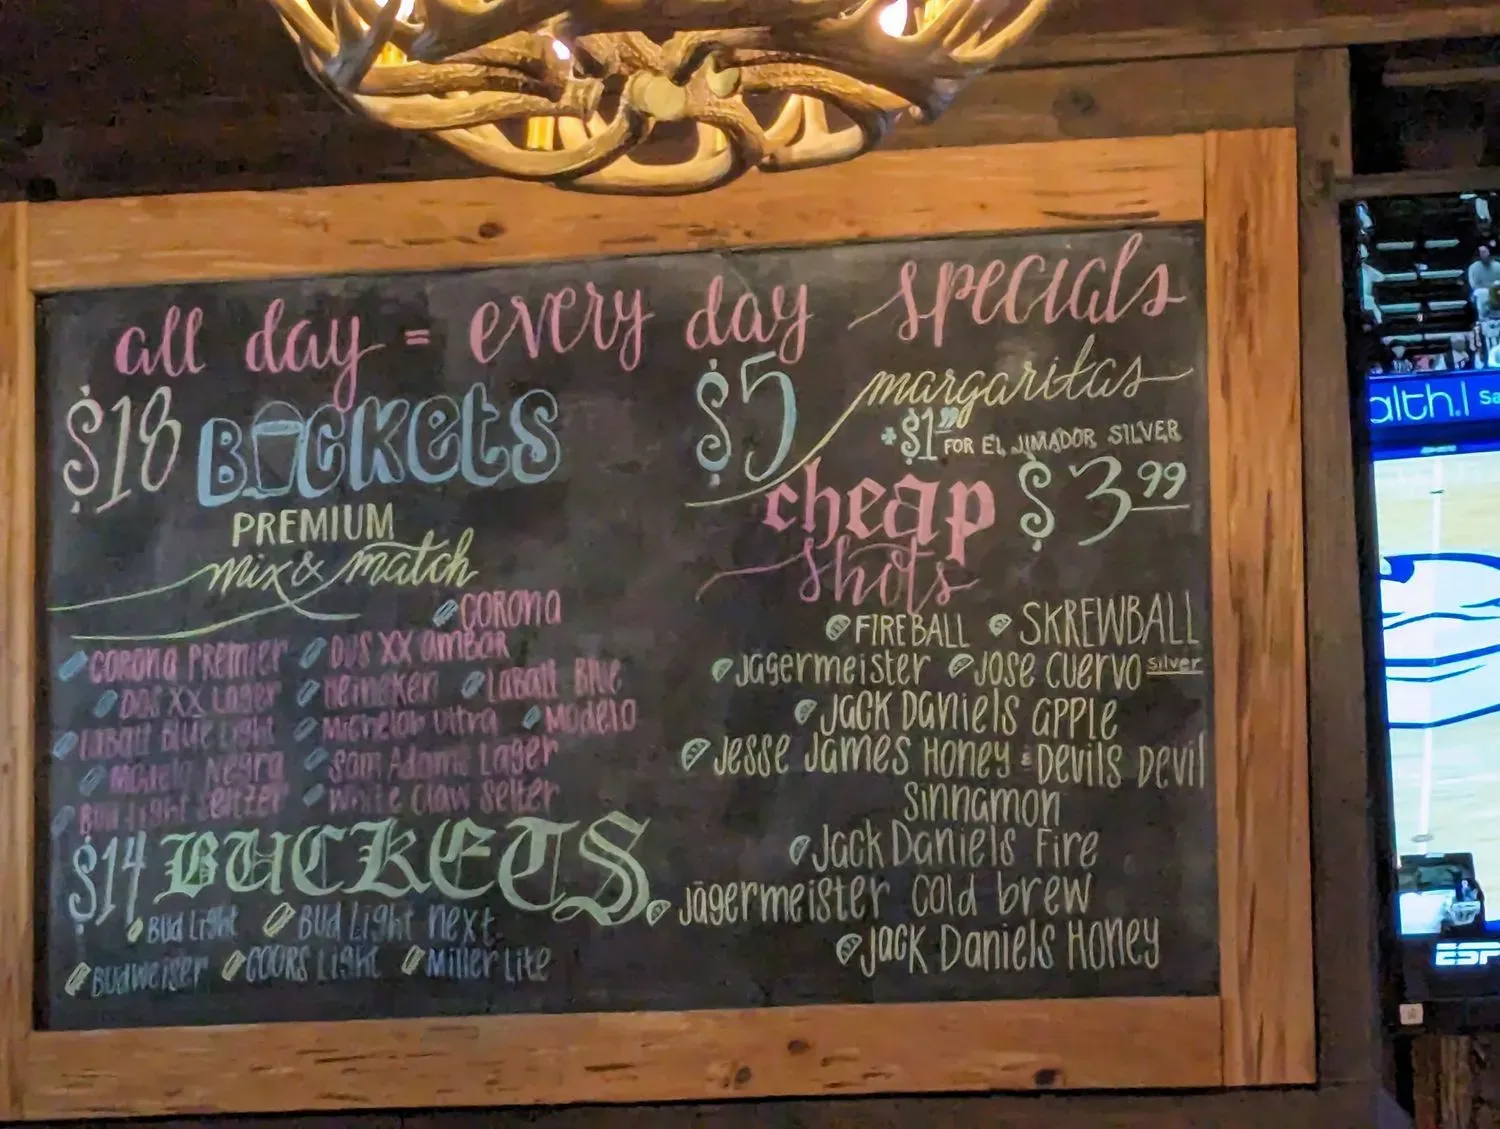 all day = every day specials
$18 BUCKETS
PREMIUM
mix & match
CORONA
CORONA PREMIER DOS XX AMBAR
DOS XX LAGER HEINEKEN LABATT BLUE
LABATT BLUE LIGHT MICHELOB ULTRA MODELO
MODELO NEGRA SAM ADAMS LAGER
BUD LIGHT SELTZER WHITE CLAW SELTZER
$14 BUCKETS
BUD LIGHT BUD LIGHT NEXT
BUDWEISER COORS LIGHT MILLER LITE
$5 margaritas
+$1.00 FOR EL JIMADOR SILVER
cheap $3.99
shots
FIREBALL SKREWBALL
JÄGERMEISTER JOSE CUERVO silver
JACK DANIELS APPLE
JESSE JAMES HONEY & DEVILS DEVIL
SINNAMON
JACK DANIELS FIRE
JÄGERMEISTER COLD BREW
JACK DANIELS HONEY
alth.
ESP